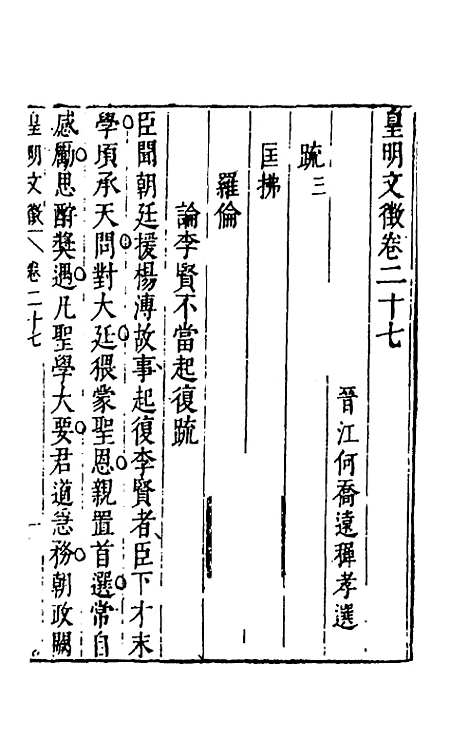 皇明文徵卷二十七
晉江何喬遠穉孝選
疏三
匡拂
羅倫
論李賢不當起復疏
臣聞朝廷援楊溥故事起復李賢者臣下才末
學頃承天問對大廷猥蒙聖恩親置首選常自
感勵思酧奬遇凡聖學大要君道急務朝政闕
皇明文徵 卷二十七 一